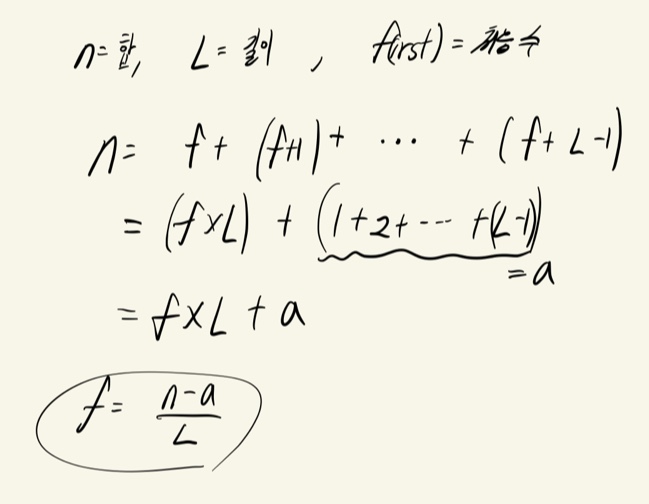 n=합, L=길이, f(irst)=첫수
n= f+(f+1)+ ⋯ +(f+L-1)
=(f×L)+(1+2+⋯+(L-1))
=a
=f×L+a
f= n-a
L